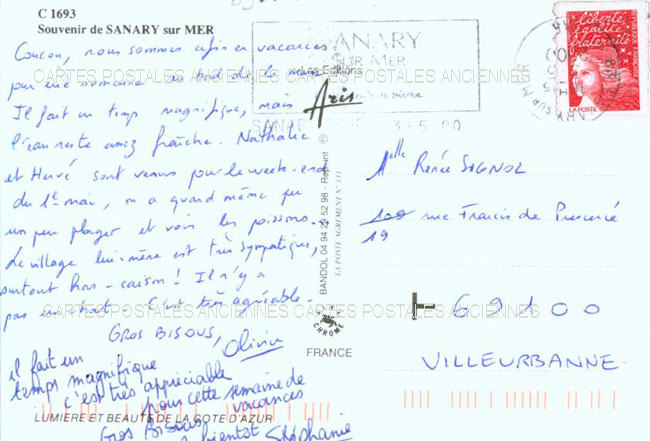 C 1693
Souvenir de SANARY sur MER
Coucou, nous sommes enfin en vacances
pour une semaine au bord de la mer.
Il fait un temps magnifique, mais
l'eau reste assez fraîche. Nathalie
et Hervé sont venus pour le week-end
du 1er mai, on a quand même pu
un peu plager et voir les poissons.
Le village lui-même est très sympatique,
surtout hors-saison ! Il n'y a
pas un chat - C'est très agréable -
GROS BISOUS,
Olivier
il fait un
temps magnifique
c'est très appréciable
pour cette semaine de
vacances
Gros Bisous
bientôt Stéphanie
LUMIERE ET BEAUTE DE LA COTE D'AZUR
CARTES POSTALES ANCIENNES CARTES POSTALES ANCIENNES
CARTES POSTALES ANCIENNES CARTES POSTALES ANCIENNES
SANARY
SUR MER
Les Editions
Aris
3-5-00
BANDOL 04 94 29 52 98 - Reprint
LA POSTE AGREMENT N° 111
CHROME
FRANCE
liberté
égalité
fraternité
LA POSTE
Melle Renée SIGNOL
109 rue Francis de Pressencé
19
69100
VILLEURBANNE